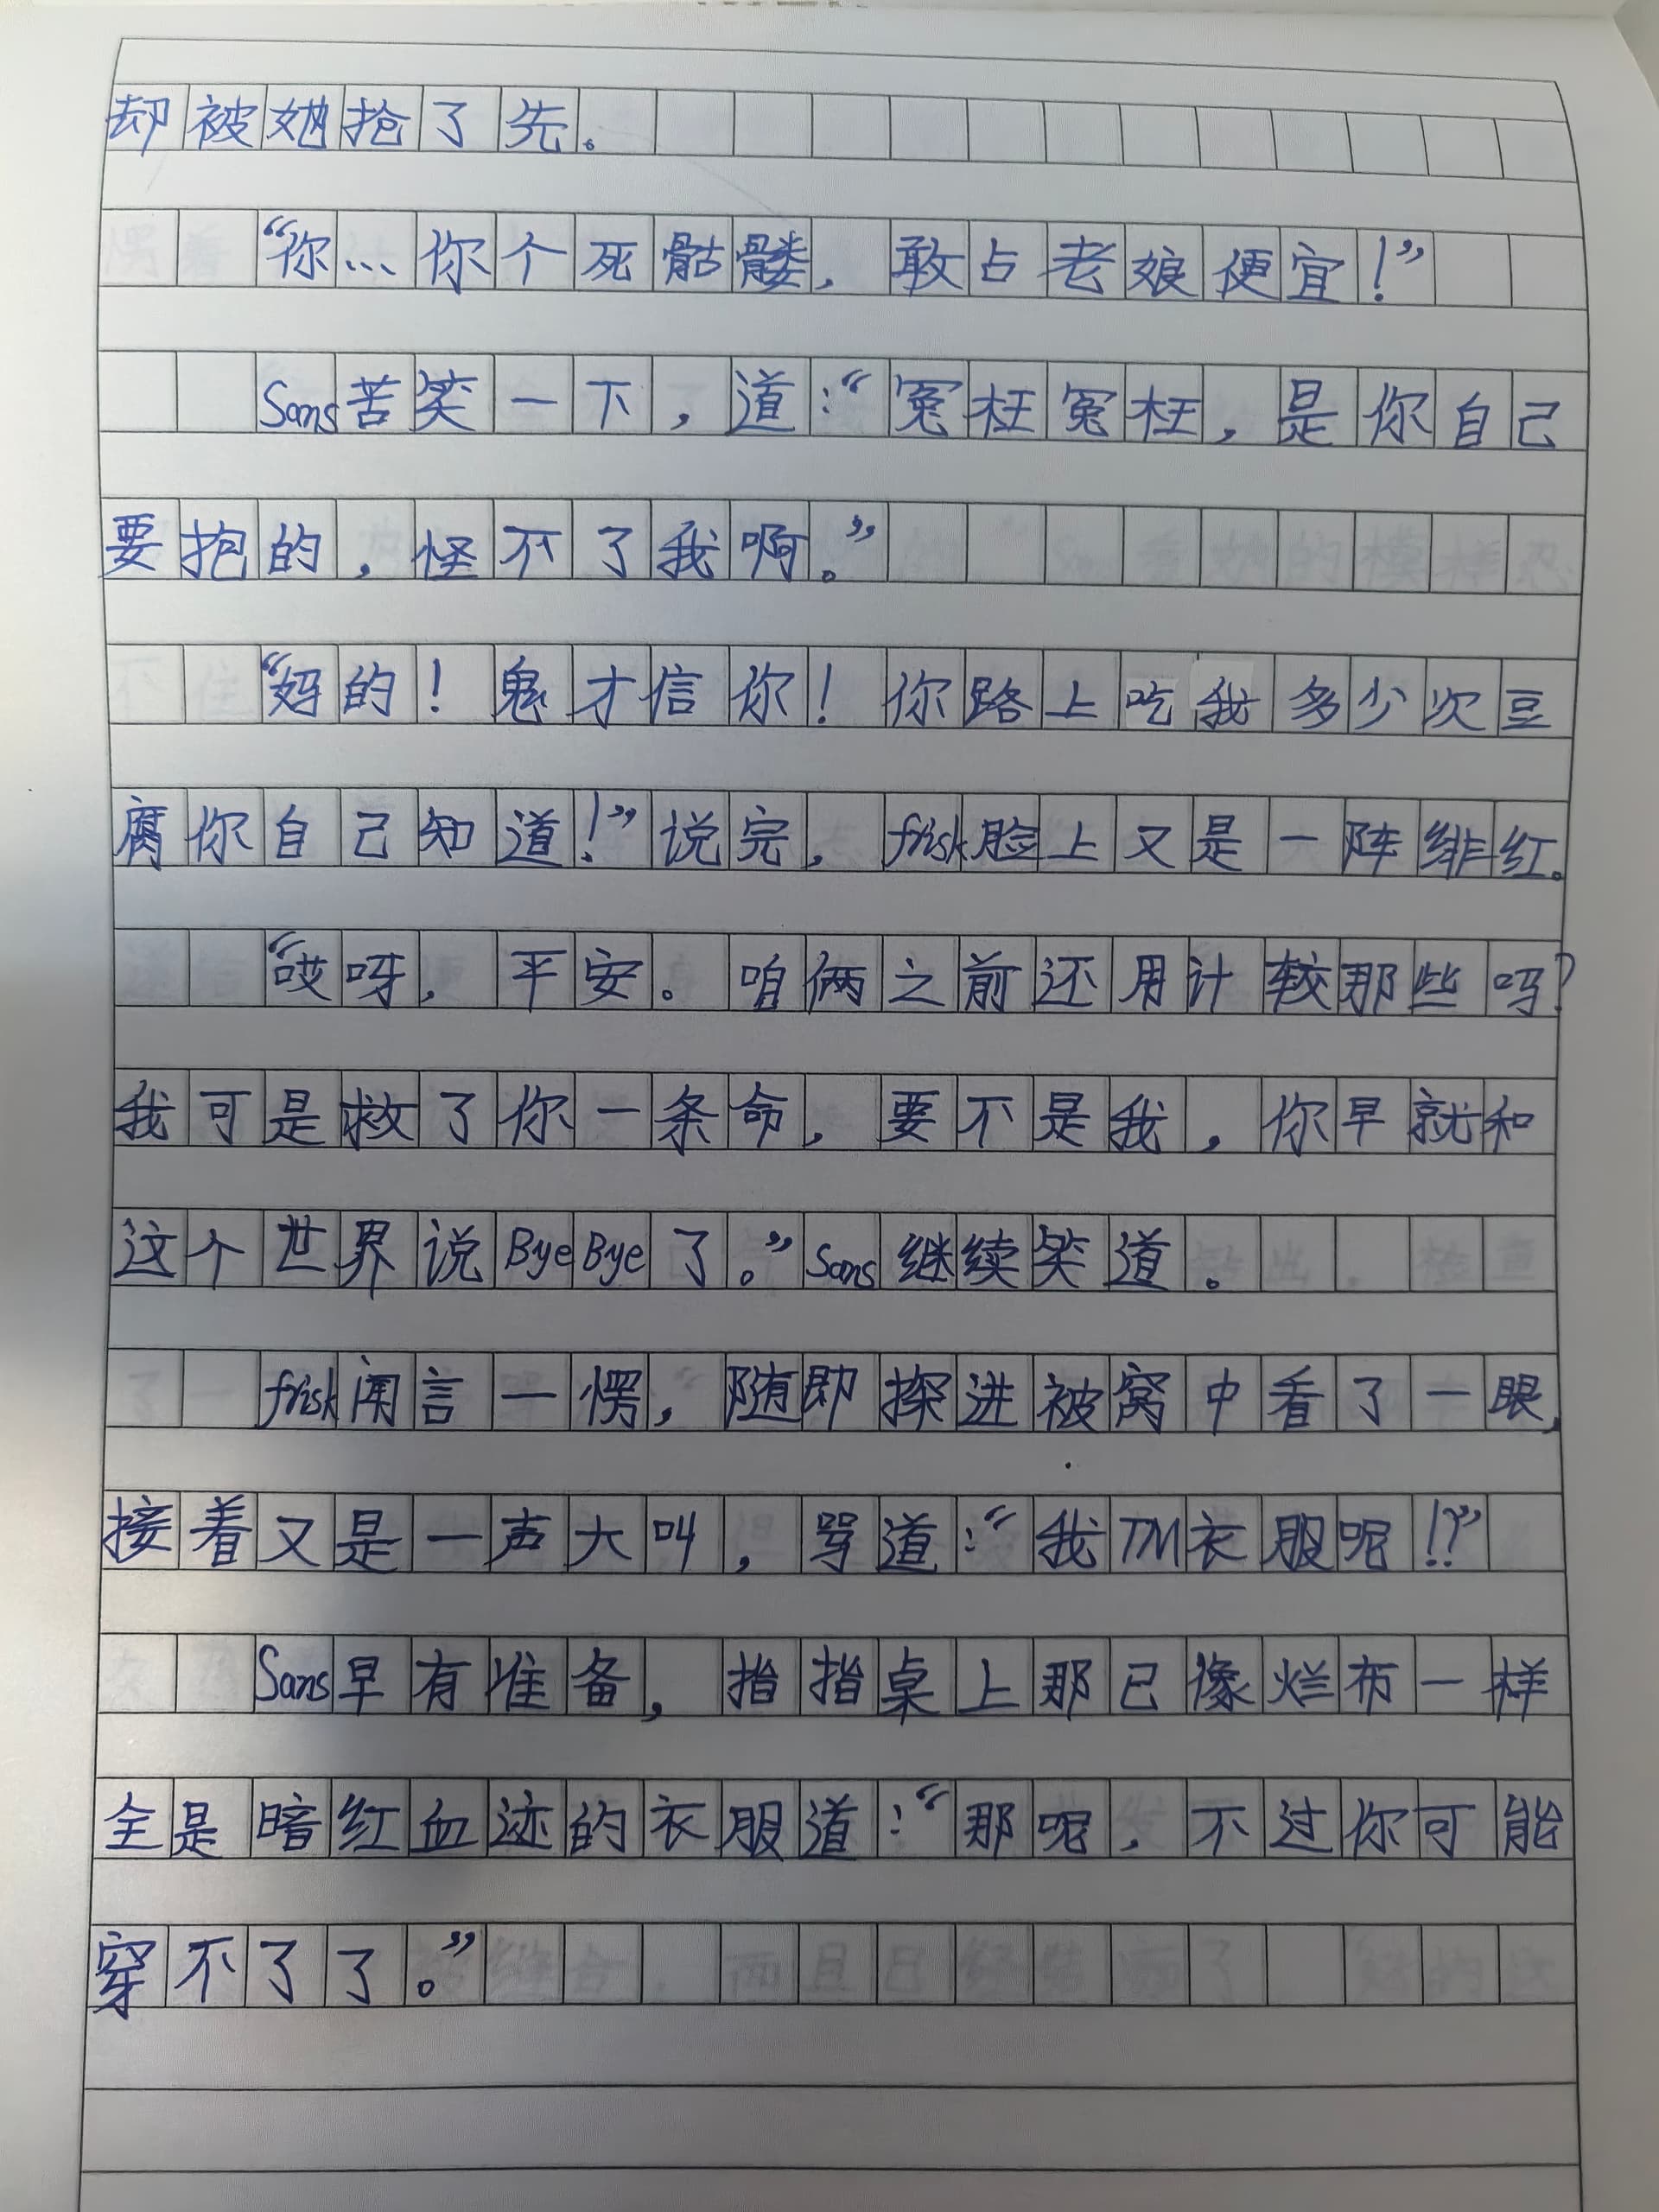 却被她抢了先。
“你…你个死骷髅，敢占老娘便宜！”
Sans苦笑一下，道：“冤枉冤枉，是你自己
要抱的，怪不了我啊。”
“妈的！鬼才信你！你路上吃我多少次豆
腐你自己知道！”说完，frisk脸上又是一阵绯红。
“哎呀，平安。咱俩之前还用计较那些吗？
我可是救了你一条命，要不是我，你早就和
这个世界说ByeBye了。”Sans继续笑道。
frisk闻言一愣，随即探进被窝中看了一眼，
接着又是一声大叫，骂道：“我TM衣服呢！？”
Sans早有准备，指指桌上那已像烂布一样
全是暗红血迹的衣服道：“那呢，不过你可能
穿不了了。”